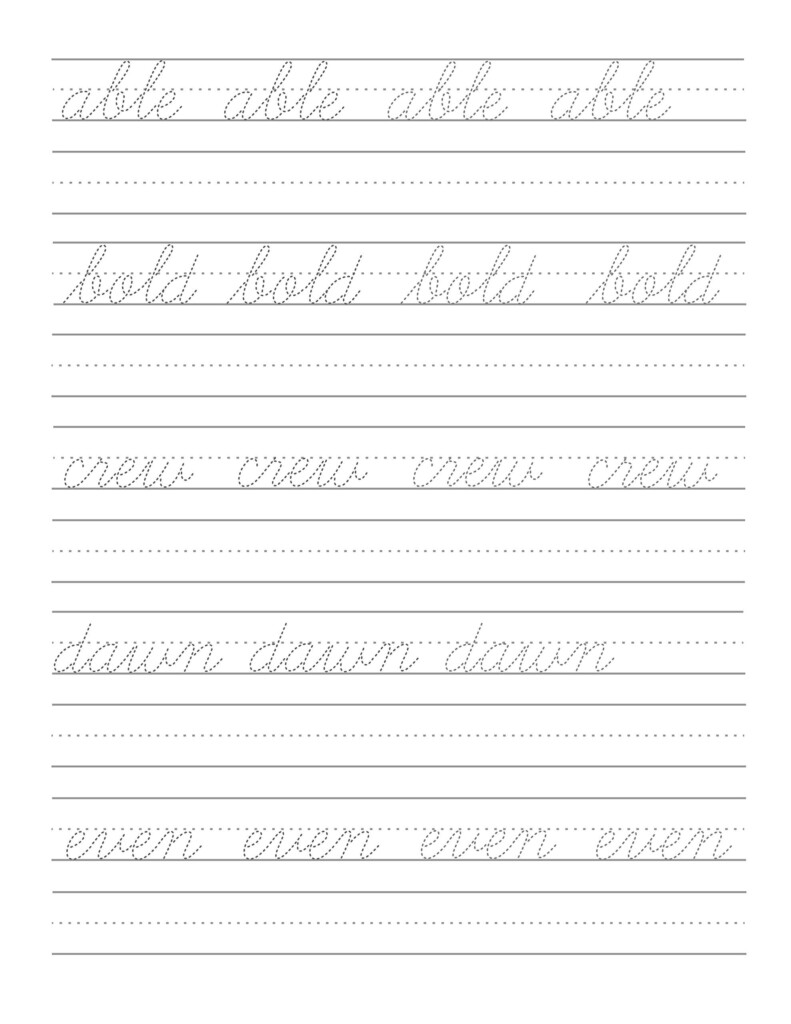 able able able able
bold bold bold bold
crew crew crew crew
dawn dawn dawn
even even even even